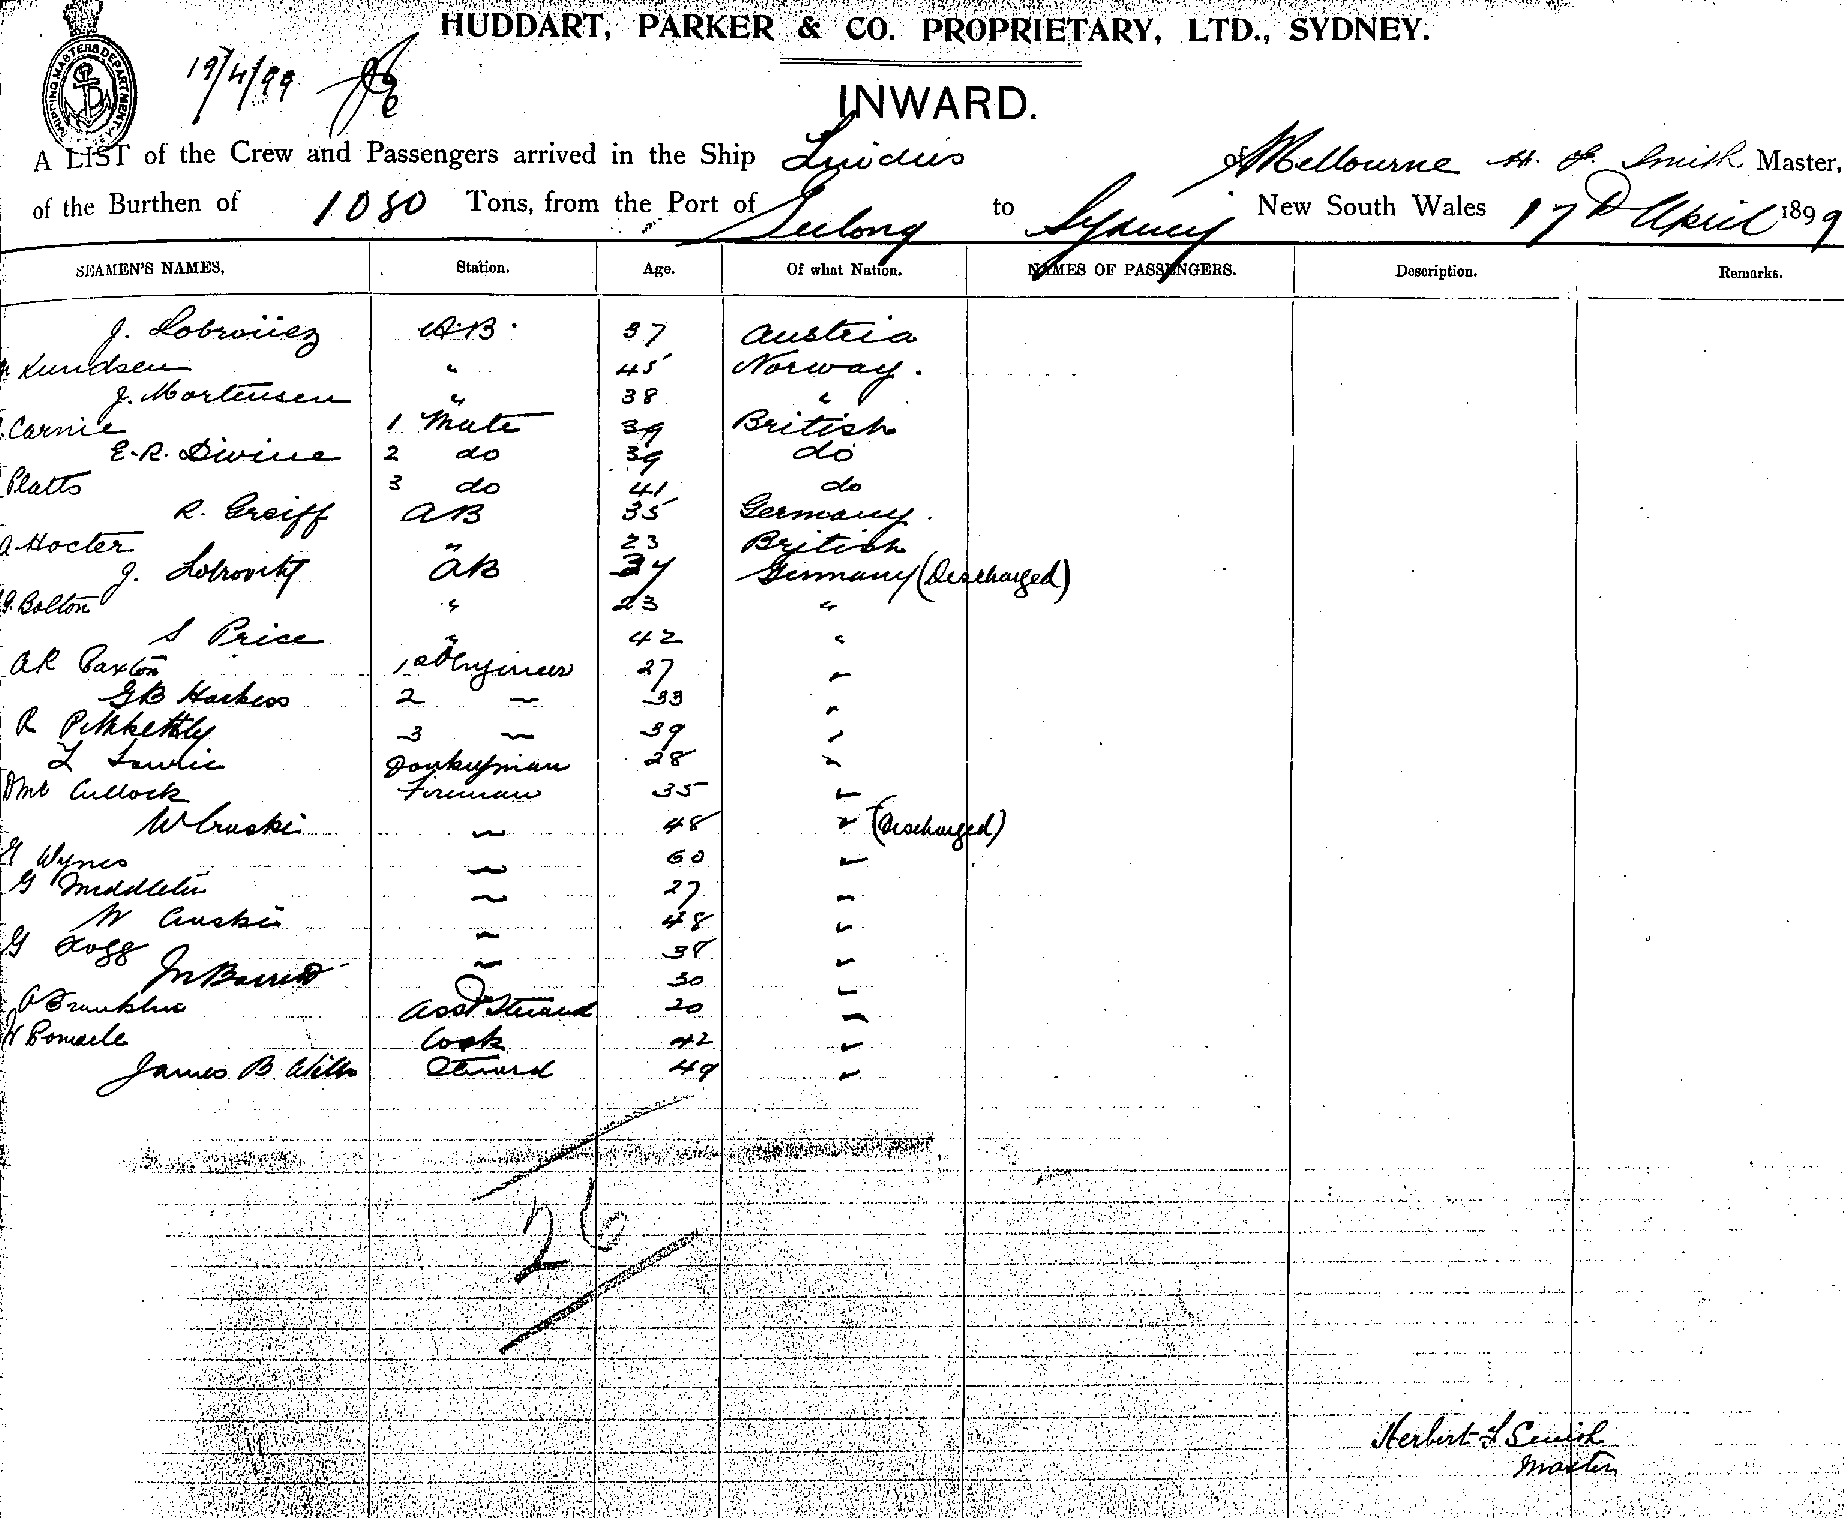 HUDDART, PARKER & CO. PROPRIETARY, LTD., SYDNEY.
19/4/99
INWARD.
A LIST of the Crew and Passengers arrived in the Ship Lindus of Melbourne H. L. Smith Master,
of the Burthen of 1080 Tons, from the Port of Geelong to Sydney New South Wales 17th April 1899
SEAMEN'S NAMES, Station. Age. Of what Nation. NAMES OF PASSENGERS. Description. Remarks.
J. A.B. 37 Austria
Kundsen " 45 Norway.
J. Mortensen " 38 "
Carnie 1 Mate 39 British
E. R. Divine 2 do 39 do
Platts 3 do 41 do
R. Greiff AB 35 Germany.
A Hocter " 23 British
J. Lobrovity AB 37 Germany (Discharged)
G. Bolton " 23 "
S Price " 42 "
AR Paxton 1st Engineer 27 "
GB Harkess 2 " 33 "
R Pitkethly 3 " 39 "
L Lawrie Donkeyman 28 "
D Mc Cullock Fireman 35 "
W Cruski " 48 " (Discharged)
Wynes " 60 "
G Middleton " 27 "
W Cruskie " 48 "
G Fogg " 38 "
Jn Barrett 30 "
A Franklin Asst Steward 20 "
Cook 42 "
James B Wills Steward 49 "
26
Herbert L Smith
Master